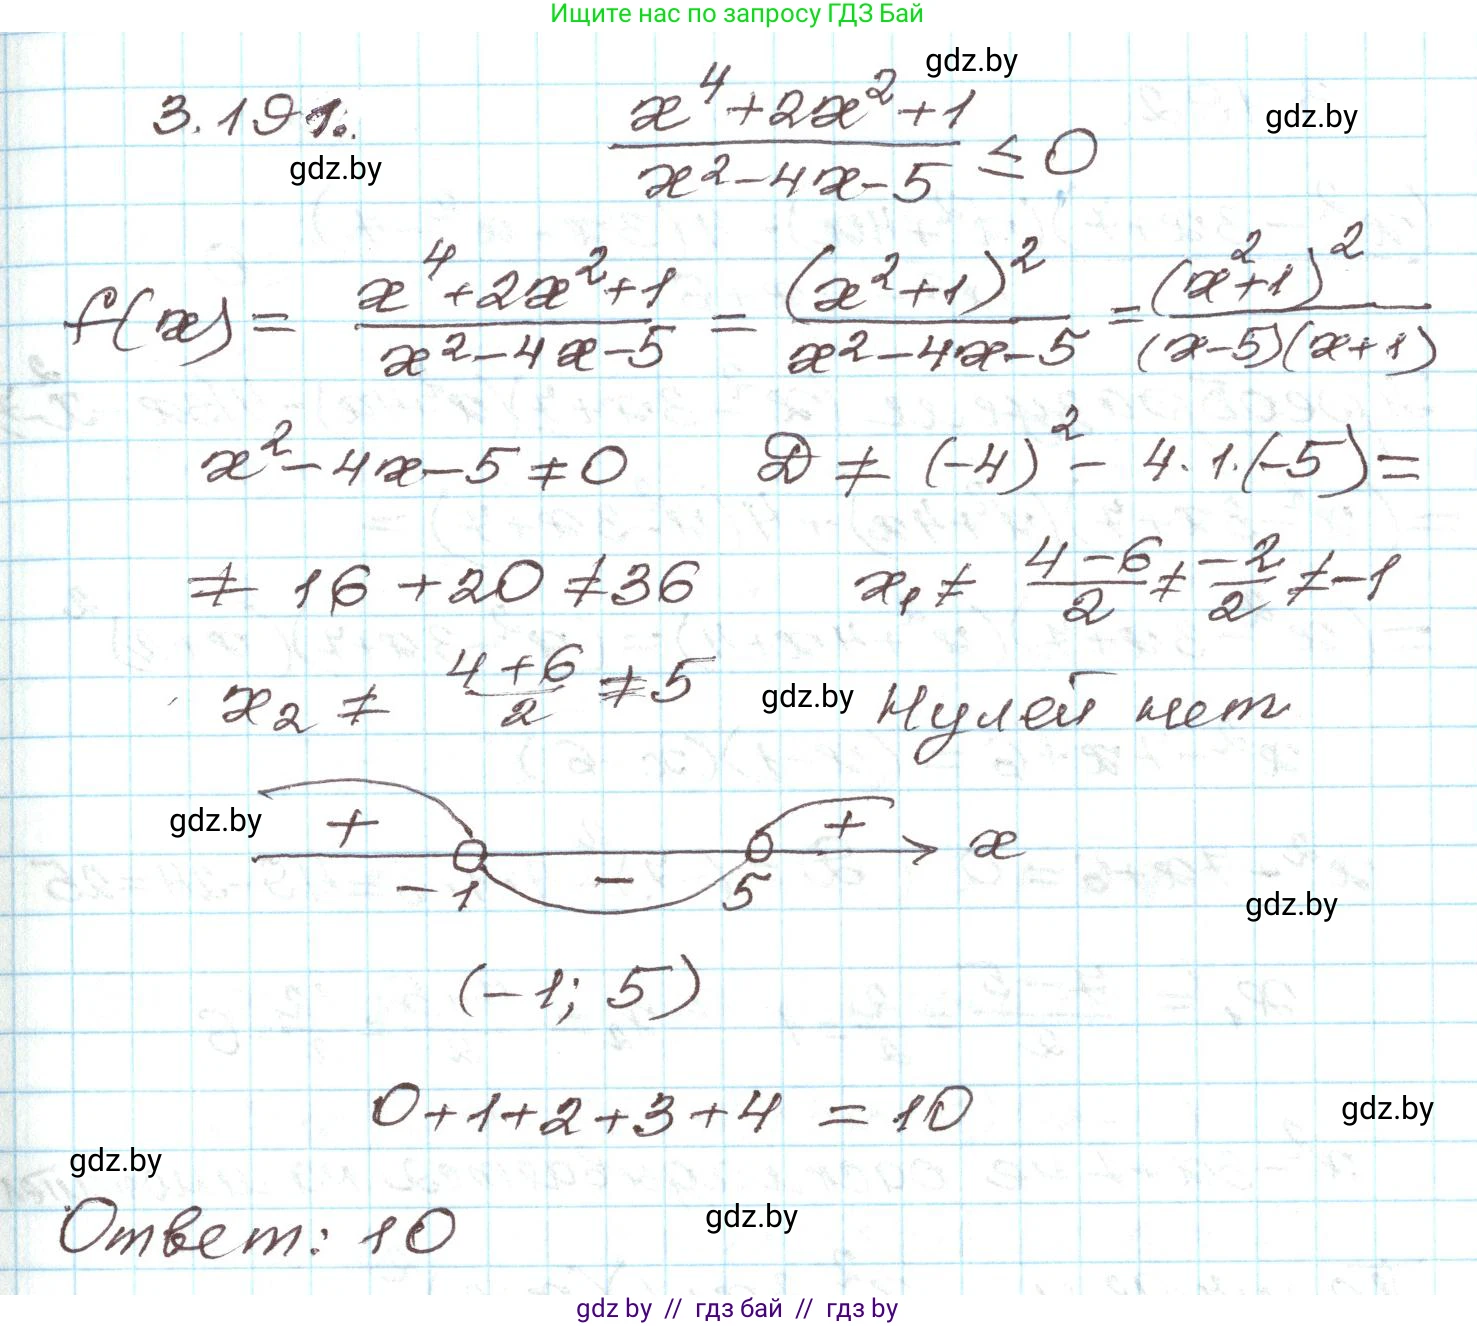 Ищите нас по запросу ГДЗ Бай
gdz.by
3.191.
x⁴+2x²+1 / x²-4x-5 ≤ 0
gdz.by
gdz.by
f(x) = x⁴+2x²+1 / x²-4x-5 = (x²+1)² / x²-4x-5 = (x²+1)² / (x-5)(x+1)
x²-4x-5≠0 D ≠ (-4)² - 4·1·(-5) =
≠ 16+20 ≠ 36 x₁ ≠ 4-6 / 2 ≠ -2 / 2 ≠ -1
x₂ ≠ 4+6 / 2 ≠ 5 gdz.by Нулей нет
gdz.by + - + x
-1 5
gdz.by
(-1; 5)
0+1+2+3+4 = 10
gdz.by
gdz.by
Ответ: 10
gdz.by
gdz by // гдз бай // гдз by